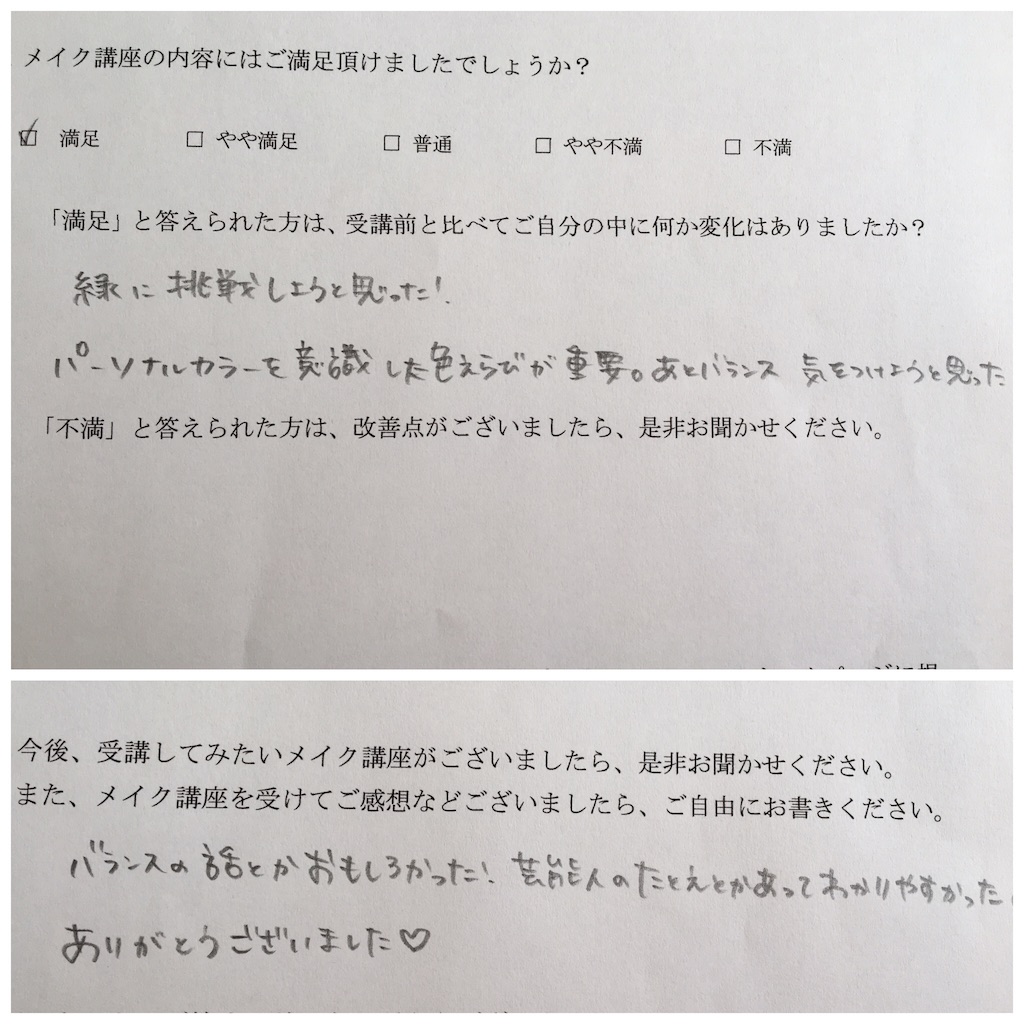 メイク講座の内容にはご満足頂けましたでしょうか？
☑ 満足 □ やや満足 □ 普通 □ やや不満 □ 不満
「満足」と答えられた方は、受講前と比べてご自分の中に何か変化はありましたか？
緑に挑戦しようと思った！
パーソナルカラーを意識した色えらびが重要。あとバランス 気をつけようと思った
「不満」と答えられた方は、改善点がございましたら、是非お聞かせください。
今後、受講してみたいメイク講座がございましたら、是非お聞かせください。
また、メイク講座を受けてご感想などございましたら、ご自由にお書きください。
バランスの話とかおもしろかった！芸能人のたとえとかあってわかりやすかった
ありがとうございました♡